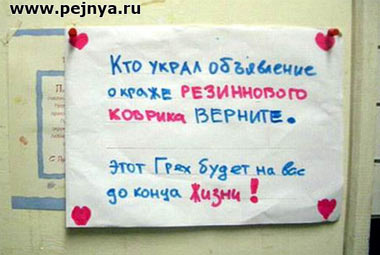 www.pejnya.ru
Кто украл объявление
о краже резиннового
коврика верните.
Этот Грех будет на вас
до конца Жизни!